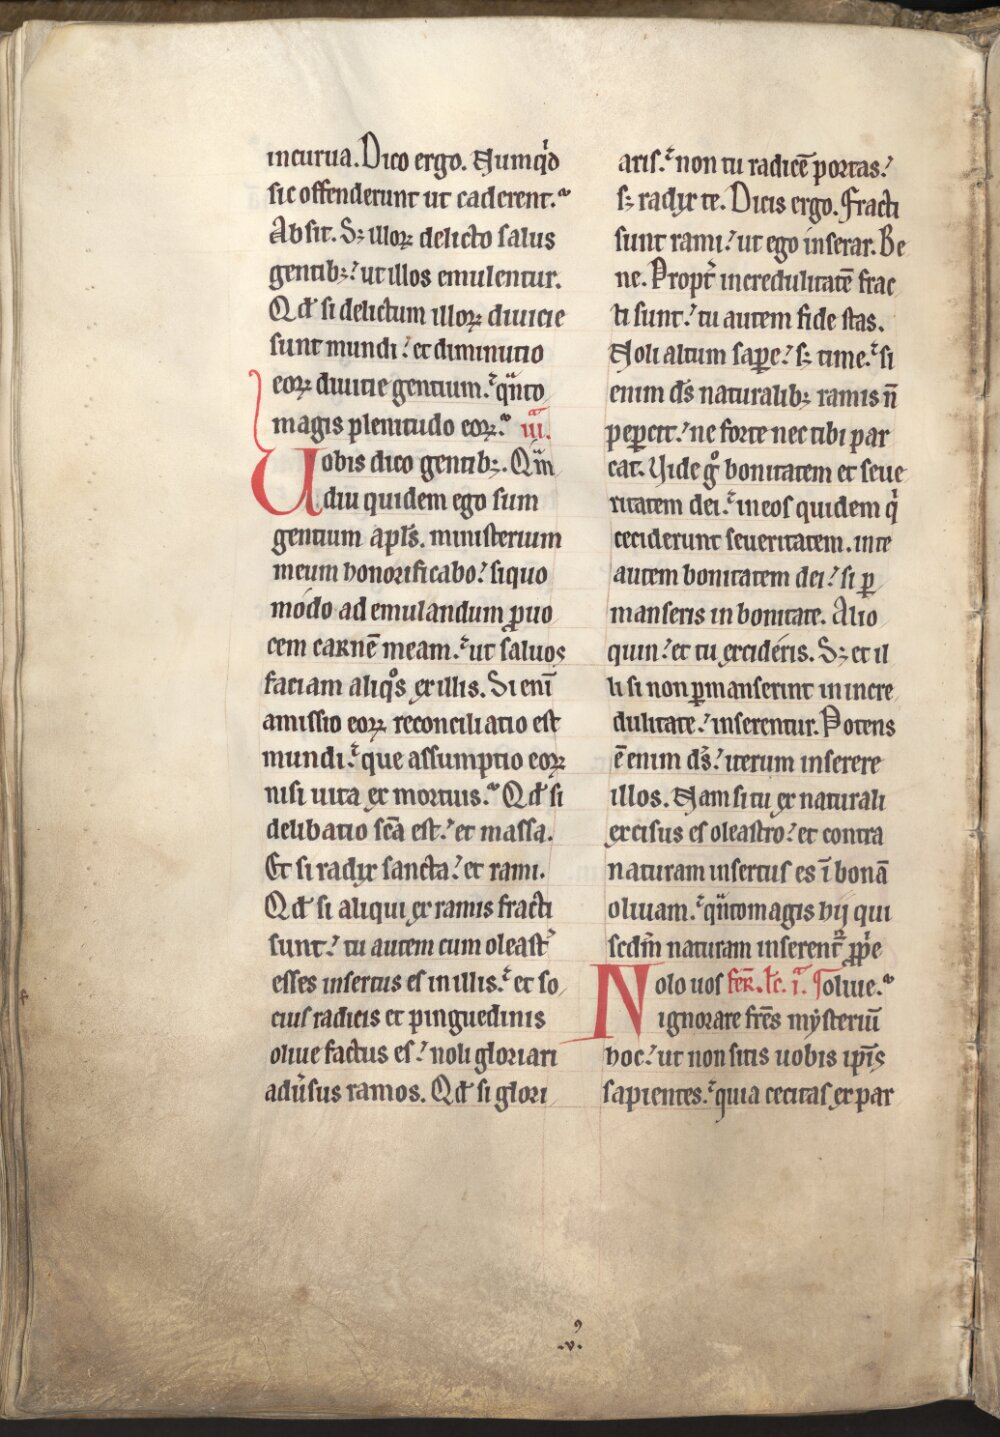 incurua. Dico ergo. Numq̇d
sic offenderunt ut caderent.
Absit. Sꝫ illoꝝ delicto salus
gentibꝫ: ut illos emulentur.
Qđ si delictum illoꝝ diuicie
sunt mundi: et diminutio
eoꝝ diuitie gentium: qͣnto
magis plenitudo eoꝝ. iiiͣ.
Uobis dico gentibꝫ. Qͣm
diu quidem ego sum
gentium apl̄s. ministerium
meum honorificabo: siquo
modo ad emulandum ꝓuo
cem carnē meam: ut saluos
faciam aliqͦs ex illis. Si enī
amissio eoꝝ reconciliatio est
mundi: que assumptio eoꝝ
nisi uita ex mortuis. Qđ si
delibatio sc̄a est: et massa.
Et si radix sancta: et rami.
Qđ si aliqui ex ramis fracti
sunt: tu autem cum oleast̓
esses insertus es in illis: et so
cius radicis et pinguedinis
oliue factus es: noli gloriari
adu̓sus ramos. Qđ si glori
aris: non tu radicē portas:
sꝫ radix te. Dicis ergo. Fracti
sunt rami: ut ego inserar. Be
ne. Propt̓ incredulitatē frac
ti sunt: tu autem fide stas.
Noli altum saꝑe: sꝫ time: si
enim ds̄ naturalibꝫ ramis n̄
peꝑcit: ne forte nec tibi par
cat. Uide gͦ bonitatem et seue
ritatem dei: in eos quidem qͥ
ceciderunt seueritatem. in te
autem bonitatem dei: si ꝑ
manseris in bonitate. Alio
quin: et tu excideris. Sꝫ et il
li si non ꝑmanserint in incre
dulitate: inserentur. Potens
ē enim ds̄: iterum inserere
illos. Nam si tu ex naturali
excisus es oleastro: et contra
naturam insertus es ī bonā
oliuam: qͣnto magis hij qui
scdm̄ naturam inserent̓ ꝓpͥe
Nolo uos fer̄. lc̄. iͣ. ¶ oliue.
ignorare frēs mysteriū
hoc: ut non sitis uobis ip̄īs
sapientes: quia cecitas ex par
.v.ꝰ